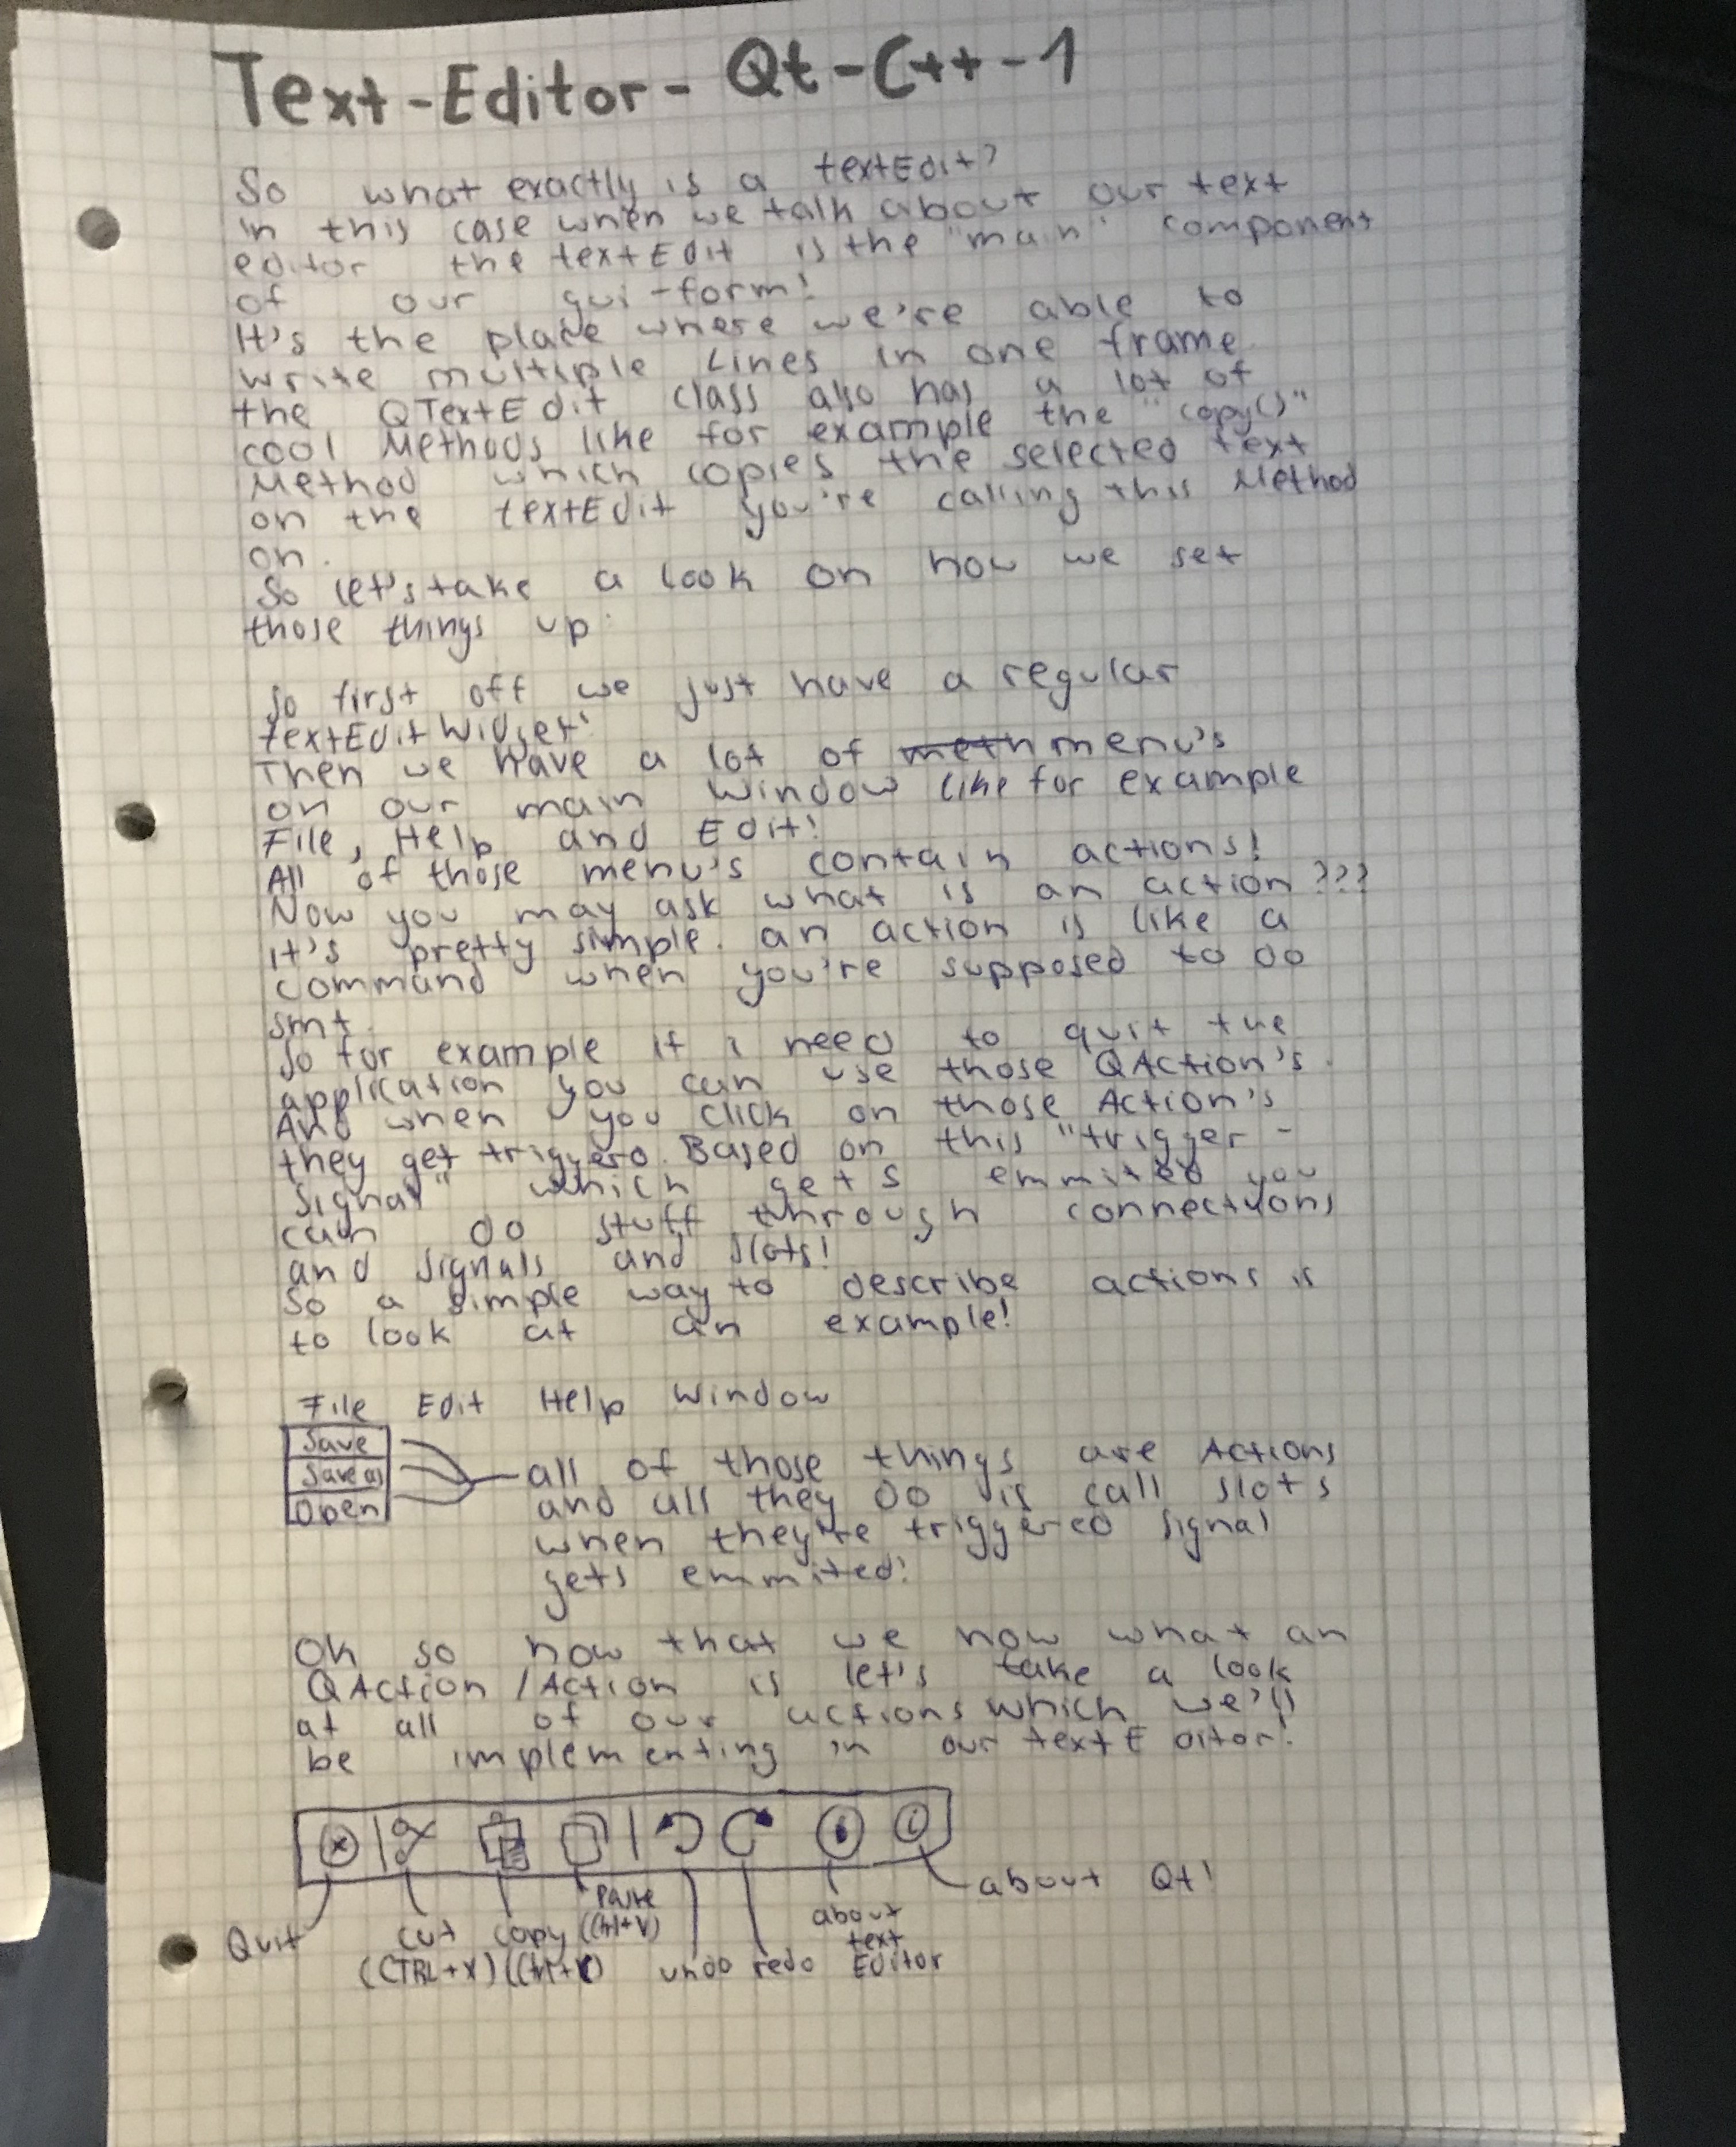 Text-Editor- Qt-C++-1
So what exactly is a textEdit?
in this case when we talk about our text
editor the textEdit is the "main" component
of our gui-form!
It's the place where we're able to
write multiple Lines in one frame
the QTextEdit class also has a lot of
cool Methods like for example the "copy()"
Method which copies the selected text
on the textEdit you're calling this Method
on.
So let's take a look on how we set
those things up.
So first off we just have a regular
textEdit Widget!
Then we have a lot of meth menu's
on our main Window like for example
File, Help and Edit!
All of those menu's contain actions!
Now you may ask what is an action???
it's pretty simple. an action is like a
command when you're supposed to do
smt.
So for example if i need to quit the
application you can use those QAction's.
And when you click on those Action's
they get triggerd. Based on this "trigger-
signal" which gets emmited you
can do stuff through connections
and signals and slots!
So a simple way to describe actions is
to look at an example!
File Edit Help Window
Save
Save as
Open
all of those things are Actions
and all they do is call slots
when they're triggered signal
gets emmited!
Ok so now that we now what an
QAction/Action is let's take a look
at all of our actions which we'll
be implementing in our textEditor!
Quit
cut
(CTRL+X)
copy
(Ctrl+C)
Paste
(Ctrl+V)
undo
redo
about
text
Editor
about Qt!